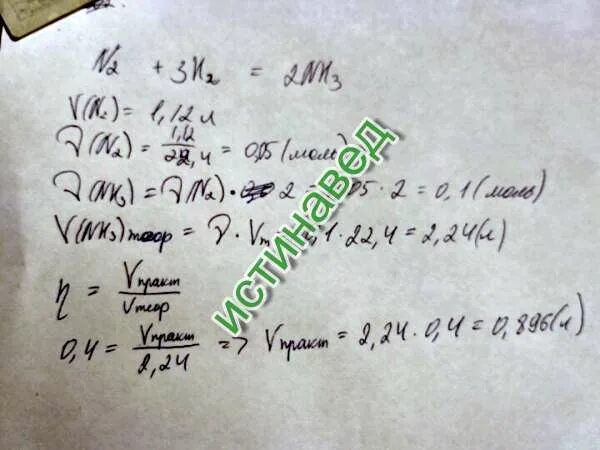 N2 + 3H2 = 2NH3
V(N2) = 1,12 л
ν(N2) = 1,12/22,4 = 0,05 (моль)
ν(NH3) = ν(N2) · 2 = 0,05 · 2 = 0,1 (моль)
V(NH3)теор = ν · Vm = 0,1 · 22,4 = 2,24 (л)
η = Vпракт/Vтеор
0,4 = Vпракт/2,24 => Vпракт = 2,24 · 0,4 = 0,896 (л)
ИСТИНАВЕД